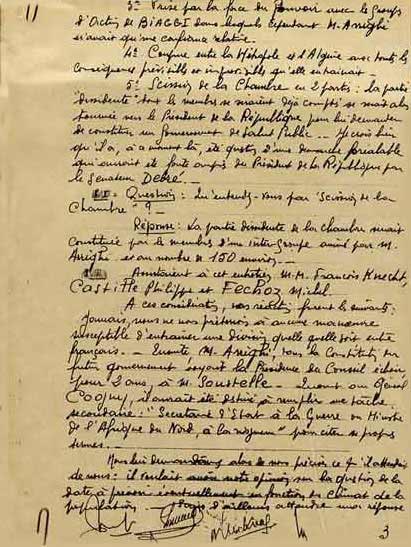 3° Prise par la force du Pouvoir avec le Groupe
d'Action de BIAGGI dans lequel cependant M. Arrighi
n'avait qu'une confiance relative.
4° Coupure entre la Métropole et l'Algérie avec toutes les
conséquences prévisibles et imprévisibles qu'elle entrainait.
5° Scission de la Chambre en 2 parties : la partie
"dissidente" dont les membres se seraient déjà comptés se serait alors
tournée vers le Président de la République pour lui demander
de constituer un Gouvernement de Salut Public ... Je crois bien
qu'ici, à ce moment là, été question d'une démarche préalable
qui aurait été faite auprès du Président de la République par
le Sénateur Debré.
Question : Qu'entendez-vous par "Scission de la
Chambre" ? -
Réponse : La partie dissidente de la chambre serait
constituée par les membres d'un inter-groupe animé par M.
Arrighi et au nombre de 150 environ. -
Assistaient à cet entretien M.M. François Knecht,
CASTILLE Philippe et FECHOZ Michel.
A ces considérations, nos réactions furent les suivantes :
Jamais, nous ne nous prêterons à aucune manoeuvre
susceptible d'entrainer une division quelle qu'elle soit entre
français. - Ensuite M. Arrighi, nous la
futur gouvernement la Présidence du Conseil
pour 2 ans, à M. SOUSTELLE. - Quant au Général
Cogny, il aurait été destiné à remplir une tâche
secondaire : "Secrétaire d'Etat à la Guerre ou Ministre
de l'Afrique du Nord, à la rigueur" pour citer ses propres
termes. -
Nous lui alors de nous préciser ce qu'il attendait
de nous : il voulait notre opinion sur la question de la
date à en fonction du climat de la
population. d'ailleurs attendre une réponse
3